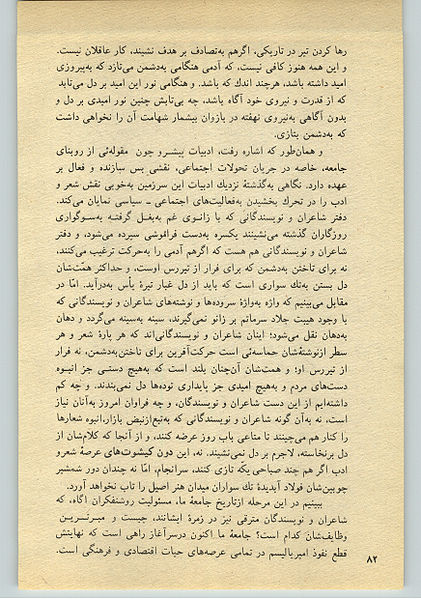 رها کردن تیر در تاریکی، اگرهم به‌تصادف بر هدف نشیند، کار عاقلان نیست.
و این همه هنوز کافی نیست، که آدمی هنگامی به‌دشمن می‌تازد که به‌پیروزی
امید داشته باشد، هرچند اندك که باشد. و هنگامی نور این امید بر دل می‌تابد
که از قدرت و نیروی خود آگاه باشد، چه بی‌تابش چنین نور امیدی بر دل و
بدون آگاهی به‌نیروی نهفته در بازوان بیشمار شهامت آن را نخواهی داشت
که به‌دشمن بتازی.
و همان‌طور که اشاره رفت، ادبیات پیشرو چون مقوله‌ئی از روبنای
جامعه، خاصه در جریان تحولات اجتماعی، نقشی بس سازنده و فعال بر
عهده دارد. نگاهی به‌گذشتهٔ نزدیك ادبیات این سرزمین به‌خوبی نقش شعر و
ادب را در تحرك بخشیدن به‌فعالیت‌های اجتماعی ـ سیاسی نمایان می‌کند.
دفتر شاعران و نویسندگانی که با زانوی غم به‌بغل گرفته به‌سوگواری
روزگاران گذشته می‌نشینند یکسره به‌دست فراموشی سپرده می‌شود، و دفتر
شاعران و نویسندگانی هم هست که اگرهم آدمی را به‌حرکت ترغیب می‌کنند،
نه برای تاختن به‌دشمن که برای فرار از تیررس اوست، و حداکثر همت‌شان
دل بستن به‌تك سواری است که باید از دل غبار تیرهٔ یأس به‌درآید. امّا در
مقابل می‌بینیم که واژه به‌واژهٔ سروده‌ها و نوشته‌های شاعران و نویسندگانی که
با وجود هیبت جلاد سرماتم بر زانو نمی‌گیرند، سینه به‌سینه می‌گردد و دهان
به‌دهان نقل می‌شود؛ اینان شاعران و نویسندگانی‌اند که هر پارهٔ شعر و هر
سطر ازنوشتهٔ‌شان حماسه‌ئی است حرکت‌آفرین برای تاختن به‌دشمن، نه فرار
از تیررس او؛ و همت‌شان آن‌چنان بلند است که به‌هیچ دستی جز انبوه
دست‌های مردم و به‌هیچ امیدی جز پایداری توده‌ها دل نمی‌بندند. و چه کم
داشته‌ایم از این دست شاعران و نویسندگان، و چه فراوان امروز به‌آنان نیاز
است، نه به‌آن گونه شاعران و نویسندگانی که به‌تبع‌ازنبض بازار،انبوه شعارها
را کنار هم می‌چینند تا متاعی باب روز عرضه کنند، و از آنجا که کلام‌شان از
دل برنخاسته، لاجرم بر دل نمی‌نشیند. نه، این دون کیشوت‌های عرصهٔ شعرو
ادب اگر هم چند صباحی یکه تازی کنند، سرانجام، امّا نه چندان دور شمشیر
چوبین‌شان فولاد آبدیدهٔ تك سواران میدان هنر اصیل را تاب نخواهد آورد.
ببینیم در این مرحله ازتاریخ جامعهٔ ما، مسئولیت روشنفکران آگاه، که
شاعران و نویسندگان مترقی نیز در زمرهٔ ایشانند، چیست و مبرم‌ترین
وظایف‌شان کدام است؟ جامعهٔ ما اکنون درسرآغاز راهی است که نهایتش
قطع نفوذ امپریالیسم در تمامی عرصه‌های حیات اقتصادی و فرهنگی است.
۸۲